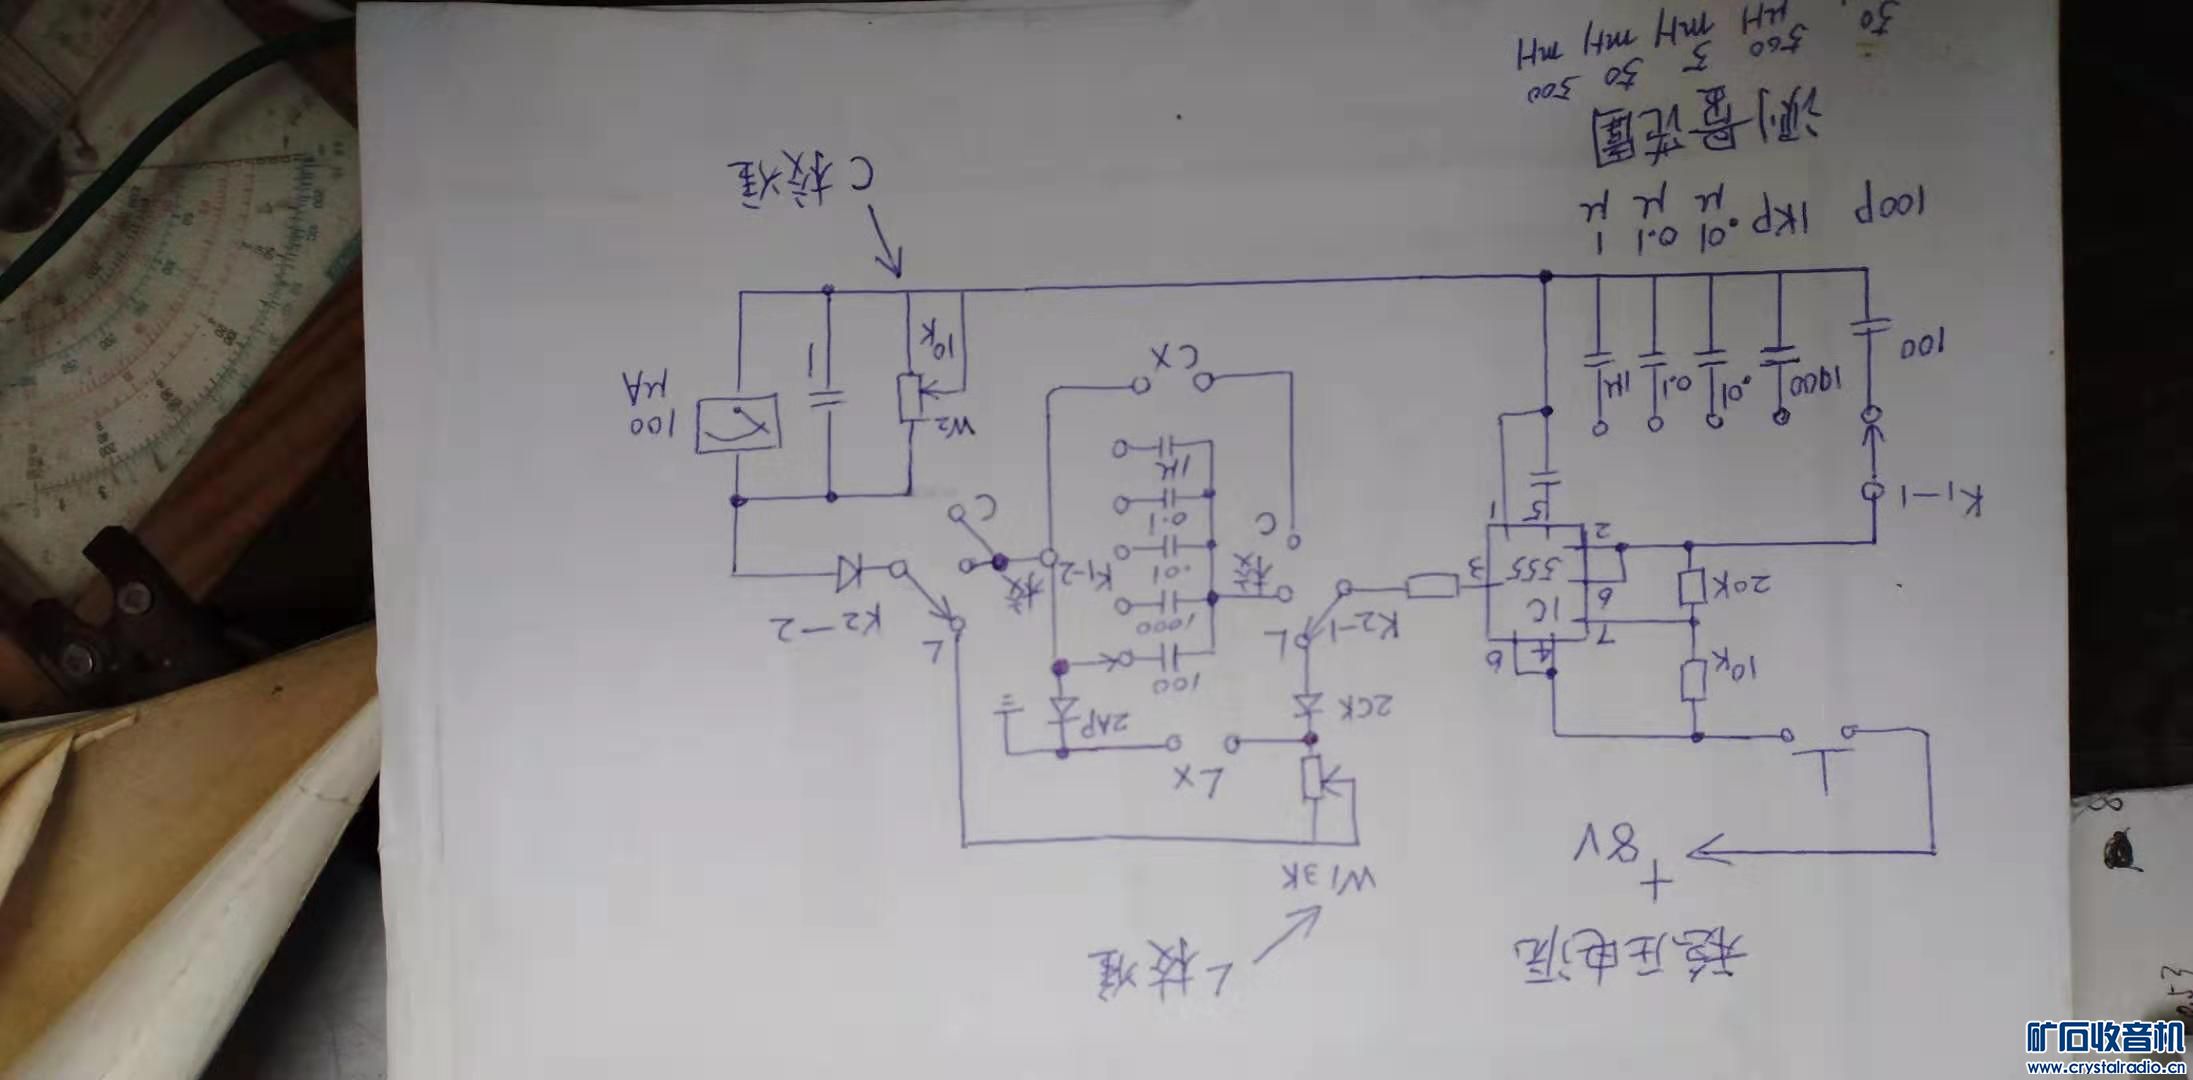 稳压电源
L校准
+
8V
W1 3K
Lx
10K
2AP
2CK
8
4
7
100
1000
.01
0.1
1μ
IC
555
6
3
2
1
5
20K
K1-1
K2-1
L
校
C
K1-2
校
C
L
K2-2
W2
10K
1
100
μA
CX
100
1000
.01
0.1
1μ
C校准
100P 1KP .01μ 0.1μ 1μ
测量范围
50 500 5 50 500
μH mH mH mH
矿石收音机
www.crystalradio.cn